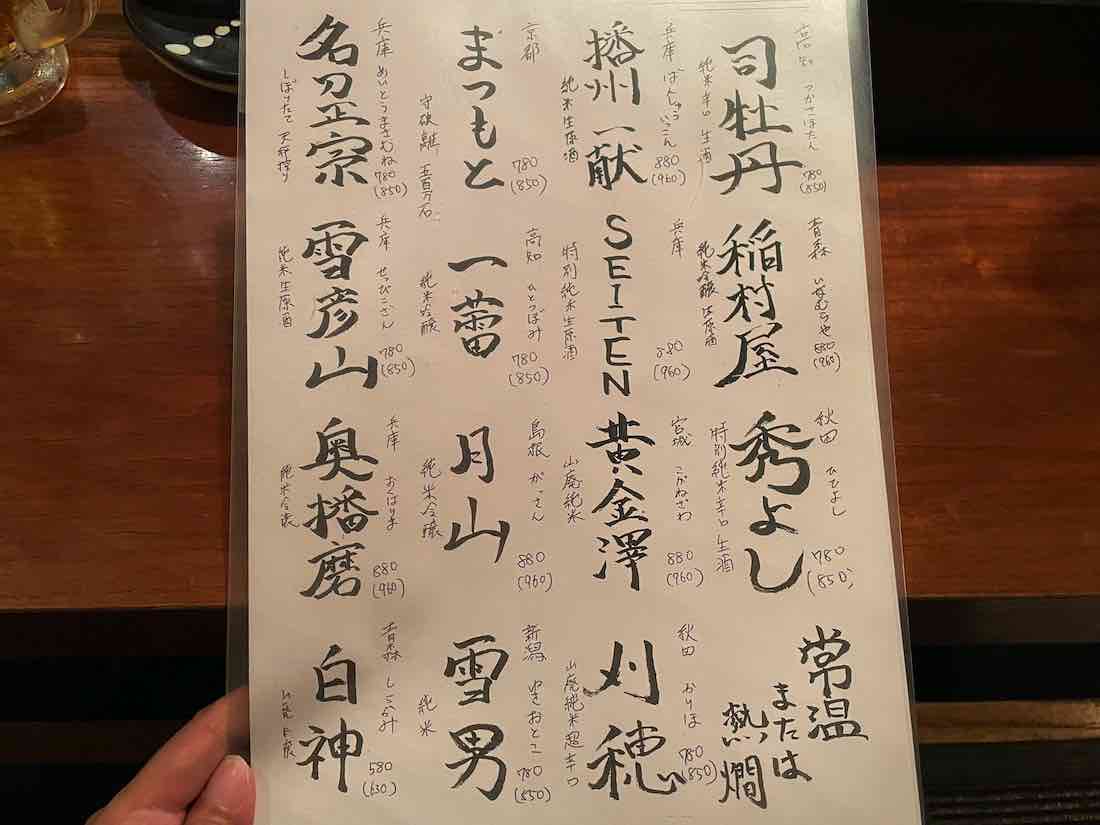 高知
つかさぼたん
司牡丹
純米辛口 生酒
780
(850)
兵庫 ばんしゅういっこん
播州一献
純米生原酒
880
(960)
京都
まつもと
守破離 五百万石
780
(850)
兵庫 めいとうまさむね
名刀正宗
しぼりたて
780
(850)
青森 いなむらや
稲村屋
純米吟醸 生原酒
880
(960)
兵庫
SEITEN
特別純米生原酒
880
(960)
高知 ひとつぼみ
一蕾
純米吟醸
780
(850)
兵庫 せっぴこさん
雪彦山
純米生原酒
780
(850)
秋田 ひでよし
秀よし
特別純米辛口 生酒
780
(850)
宮城 こがねさわ
黄金澤
山廃純米
880
(960)
島根 がっさん
月山
純米吟醸
880
(960)
兵庫 おくはりま
奥播磨
純米吟醸
880
(960)
常温
または
熱燗
秋田 かりほ
刈穂
山廃純米超辛口
780
(850)
新潟 ゆきおとこ
雪男
純米
780
(850)
青森 しらかみ
白神
580
(630)